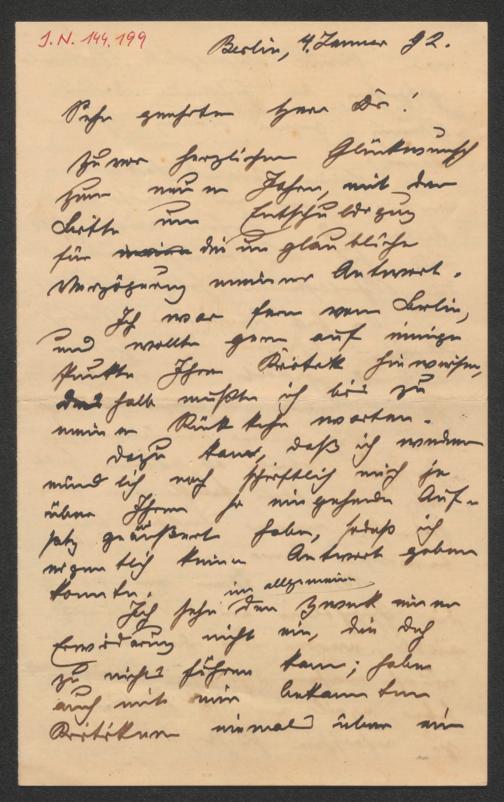 J. N. 144.199
Berlin, 4. Jänner 92.
Sehr geehrter Herr Dr!
Zuvor herzlichen Glückwunsch
zum neuen Jahre, mit der
Bitte um Entschuldigung
für die unglaubliche
Verzögerung meiner Antwort.
Ich war fern von Berlin,
und wollte gern auf einige
Punkte Ihrer Kritik hinweisen,
deshalb mußte ich bis zu
meiner Rückkehr warten.
Dazu kam, daß ich weder
mündlich noch schriftlich mich je
über Ihren so eingehenden Auf-
satz geäußert habe, sodaß ich
eigentlich keine Antwort geben
konnte.
im allgemeinen
Ich sehe den Zweck einer
Erwiderung nicht ein, die doch
zu nichts führen kann; habe
auch mit mir bekannten
Kritikern niemals über ein